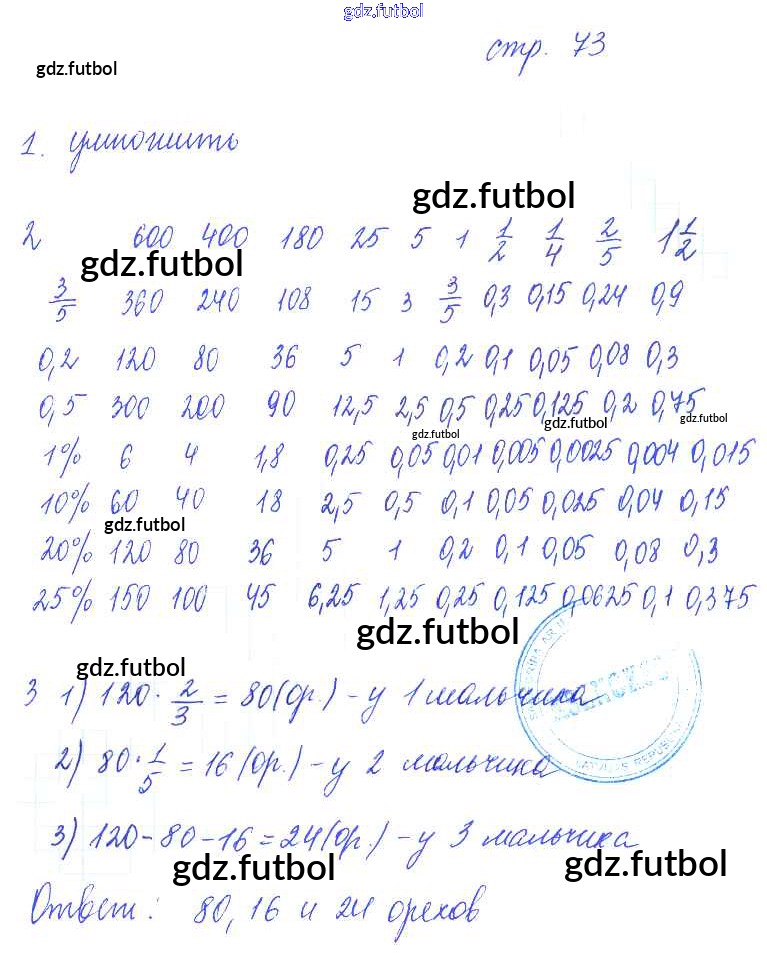 gdz.futbol
стр. 73
gdz.futbol
1. умножить
gdz.futbol
2 600 400 180 25 5 1 1/2 1/4 2/5 1 1/2
gdz.futbol
3/5 360 240 108 15 3 3/5 0,3 0,15 0,24 0,9
0,2 120 80 36 5 1 0,2 0,1 0,05 0,08 0,3
0,5 300 200 90 12,5 2,5 0,5 0,25 0,125 0,2 0,75
gdz.futbol gdz.futbol gdz.futbol
1% 6 4 1,8 0,25 0,05 0,01 0,005 0,0025 0,004 0,015
10% 60 40 18 2,5 0,5 0,1 0,05 0,025 0,04 0,15
gdz.futbol
20% 120 80 36 5 1 0,2 0,1 0,05 0,08 0,3
25% 150 100 45 6,25 1,25 0,25 0,125 0,0625 0,1 0,375
gdz.futbol
gdz.futbol
3 1) 120 · 2/3 = 80 (ор.) - у 1 мальчика
2) 80 · 1/5 = 16 (ор.) - у 2 мальчика
3) 120 - 80 - 16 = 24 (ор.) - у 3 мальчика
gdz.futbol gdz.futbol
Ответ: 80, 16 и 24 орехов